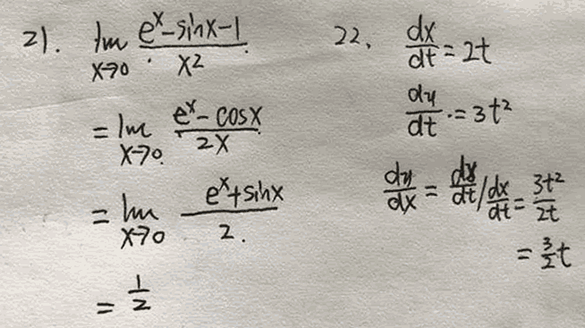 21. lim x→0 (e^x - sinx - 1)/x^2
= lim x→0 (e^x - cosx)/2x
= lim x→0 (e^x + sinx)/2.
= 1/2
22. dx/dt = 2t
dy/dt = 3t^2
dy/dx = dy/dt / dx/dt = 3t^2/2t
= 3/2 t